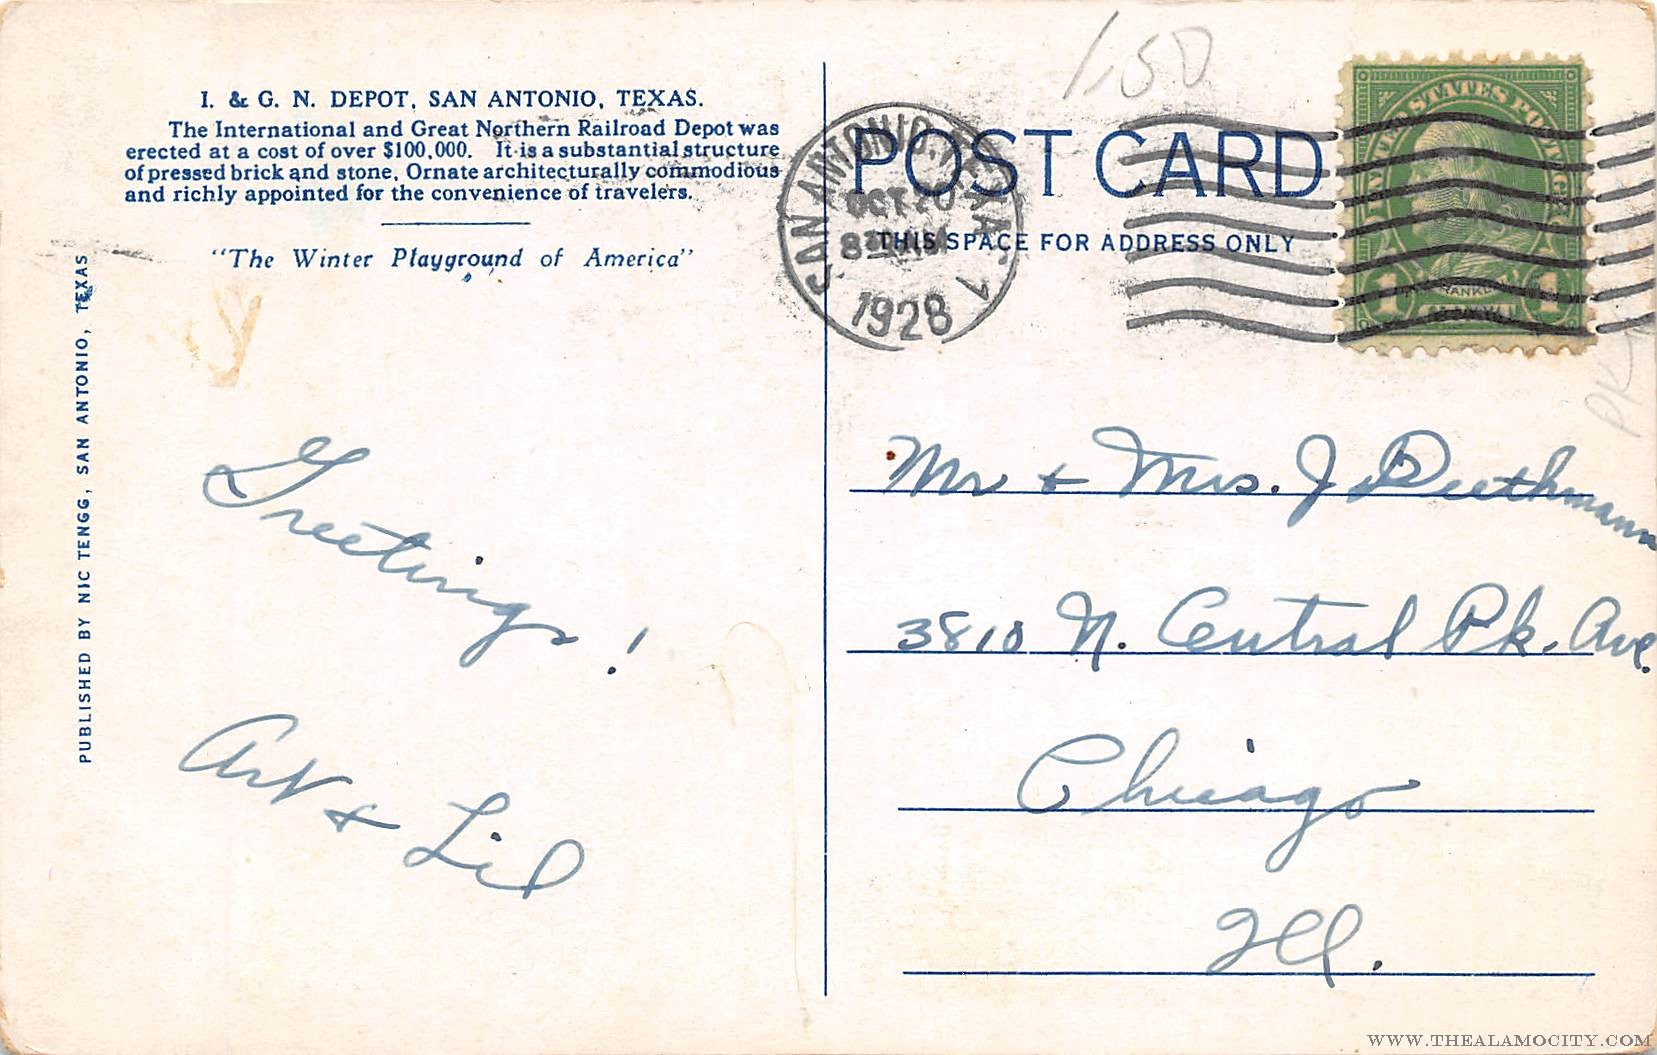 I. & G. N. DEPOT, SAN ANTONIO, TEXAS.
The International and Great Northern Railroad Depot was
erected at a cost of over $100,000. It is a substantial structure
of pressed brick and stone, Ornate architecturally commodious
and richly appointed for the convenience of travelers.
"The Winter Playground of America"
PUBLISHED BY NIC TENGG, SAN ANTONIO, TEXAS
Greetings!
Art & Lil
1.50
POST CARD
THIS SPACE FOR ADDRESS ONLY
SAN ANTONIO, TEXAS 1
OCT 20
8
1928
UNITED STATES POSTAGE
1 1
Mr & Mrs. J Diethmann
3810 N. Central Pk. Ave.
Chicago
Ill.
WWW.THEALAMOCITY.COM